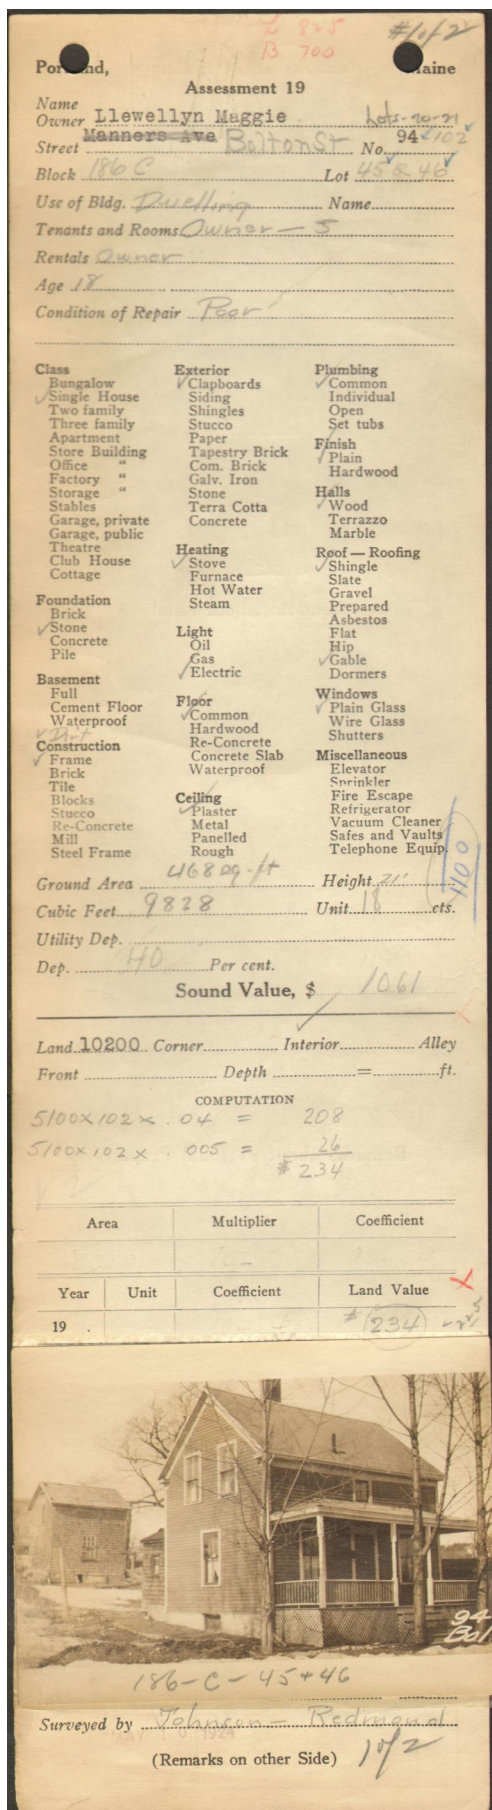 L 825
B 700
#1 of 2
Portland, Maine
Assessment 19
Name
Owner Llewellyn Maggie Lots-20-21
Street Manners Ave Bolton St No. 94 102
Block 186 C Lot 45 & 46
Use of Bldg. Dwelling Name
Tenants and Rooms Owner — 5
Rentals Owner
Age 18
Condition of Repair Poor
Class
Bungalow
Single House
Two family
Three family
Apartment
Store Building
Office "
Factory "
Storage "
Stables
Garage, private
Garage, public
Theatre
Club House
Cottage
Foundation
Brick
Stone
Concrete
Pile
Basement
Full
Cement Floor
Waterproof
Dirt
Construction
Frame
Brick
Tile
Blocks
Stucco
Re-Concrete
Mill
Steel Frame
Exterior
Clapboards
Siding
Shingles
Stucco
Paper
Tapestry Brick
Com. Brick
Galv. Iron
Stone
Terra Cotta
Concrete
Heating
Stove
Furnace
Hot Water
Steam
Light
Oil
Gas
Electric
Floor
Common
Hardwood
Re-Concrete
Concrete Slab
Waterproof
Ceiling
Plaster
Metal
Panelled
Rough
Plumbing
Common
Individual
Open
Set tubs
Finish
Plain
Hardwood
Halls
Wood
Terrazzo
Marble
Roof — Roofing
Shingle
Slate
Gravel
Prepared
Asbestos
Flat
Hip
Gable
Dormers
Windows
Plain Glass
Wire Glass
Shutters
Miscellaneous
Elevator
Sprinkler
Fire Escape
Refrigerator
Vacuum Cleaner
Safes and Vaults
Telephone Equip.
1100
Ground Area 468 sq-ft Height 21'
Cubic Feet 9828 Unit 18 cts.
Utility Dep.
Dep. 40 Per cent.
Sound Value, $ 1061
Land 10200 Corner Interior Alley
Front Depth = ft.
COMPUTATION
5100 x 102 x .04 = 208
5100 x 102 x .005 = 26
$ 234
Area Multiplier Coefficient
Year Unit Coefficient Land Value
19 . $ 234
94
Bol
186-C-45+46
Surveyed by Johnson - Redmond
(Remarks on other Side) 1 of 2